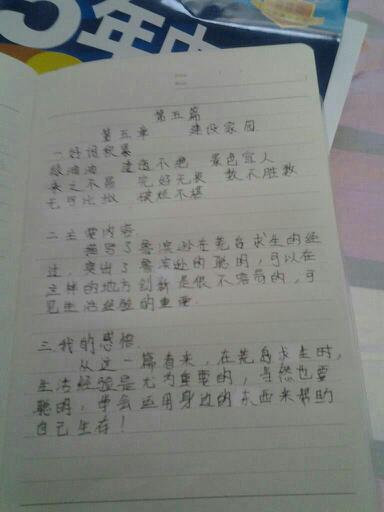 5年中
第五篇
第五章 建设家园
一好词积累
绿油油 连绵不绝 景色宜人
来之不易 完好无果 数不胜数
无可比拟 模糊不堪
二主要内容
描写了鲁滨逊在荒岛求生的经
过，突出了鲁滨逊的聪明，可以在
这样的地方创新是很不容易的，可
见生活经验的重要.
三我的感悟
从这一篇看来，在荒岛求生时，
生活经验是尤为重要的，当然也要
聪明，学会运用身边的东西来帮助
自己生存！